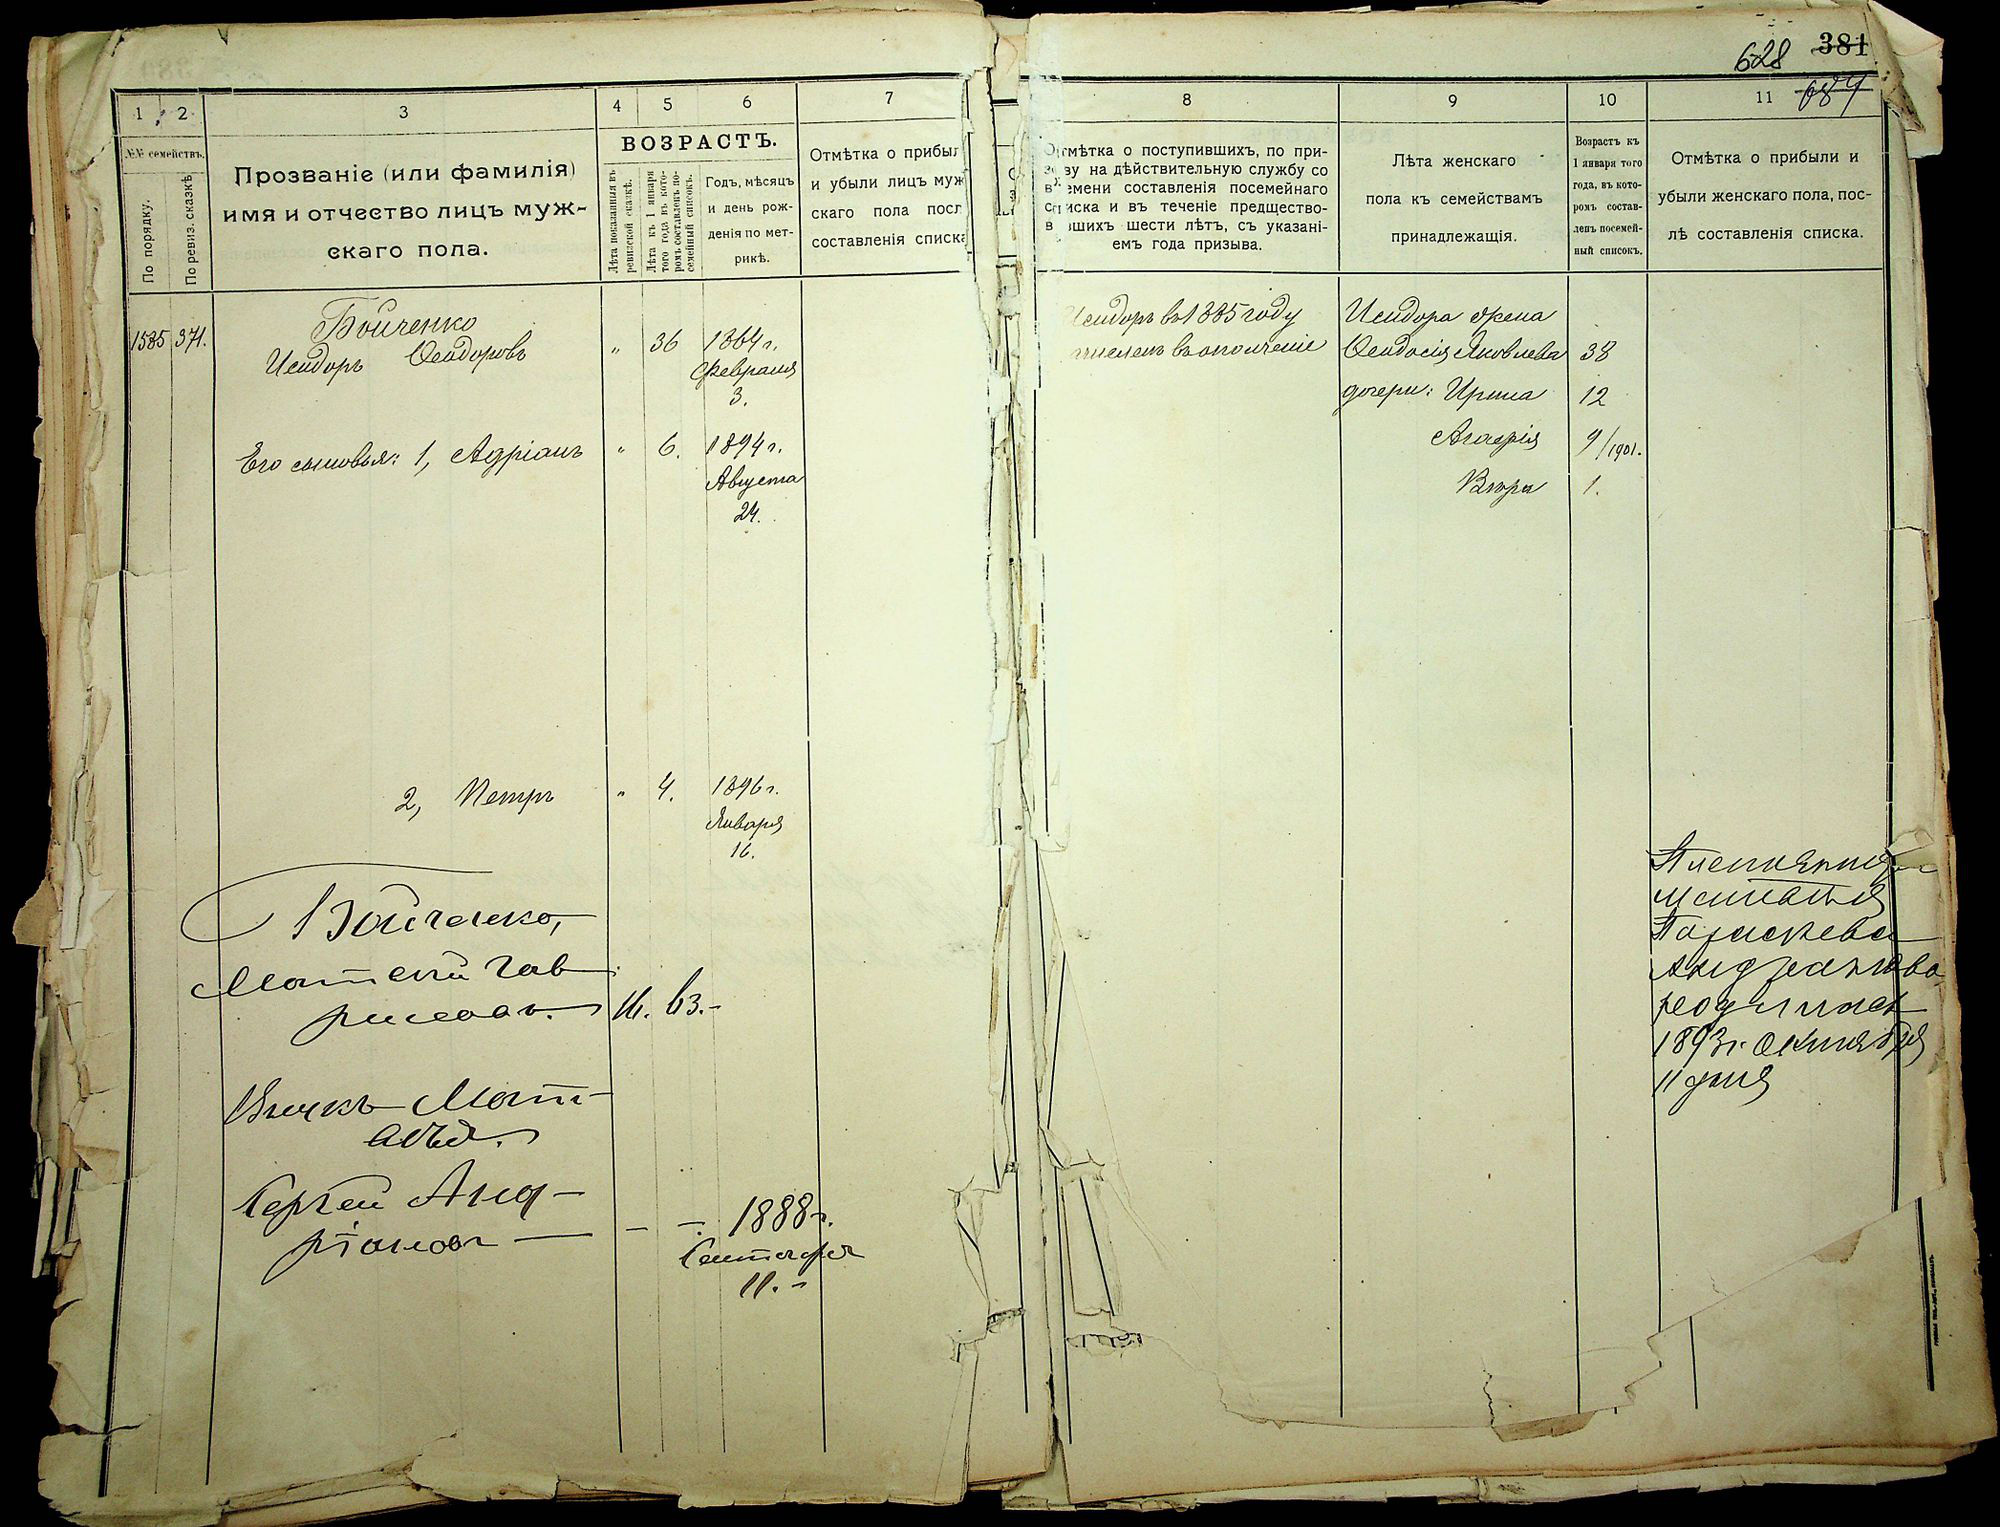 628 381
684
1 2 3 4 5 6 7
№№ семействъ.
По порядку.
По ревиз. сказкѣ
Прозваніе (или фамилія)
имя и отчество лицъ муж-
скаго пола.
ВОЗРАСТЪ.
Лѣта показанныя въ
ревизской сказкѣ.
Лѣта къ 1 января
того года въ кото-
ромъ составленъ по-
семейный списокъ.
Годъ, мѣсяцъ
и день рож-
денія по мет-
рикѣ.
Отмѣтка о прибыл
и убыли лицъ муж
скаго пола посл
составленія списка
1585 371. Бойченко
Исидоръ Ѳеодоровъ " 36 1864 г.
Февраля
3.
Его сыновья: 1, Адріанъ " 6. 1894 г.
Августа
24.
2, Петръ " 4. 1896 г.
Января
16.
Бойченко,
Матвѣй Гав
риловъ. 16. 63.-
Внукъ Мат-
вѣя.
Сергѣй Анд-
ріановъ — — -. 1888 г.
Сентября
11.-
8 9 10 11
Отмѣтка о поступившихъ, по при-
зыву на дѣйствительную службу со
времени составленія посемейнаго
списка и въ теченіе предшество-
вавшихъ шести лѣтъ, съ указані-
емъ года призыва.
Лѣта женскаго
пола къ семействамъ
принадлежащія.
Возрастъ къ
1 января того
года, въ кото-
ромъ состав-
ленъ посемей-
ный списокъ.
Отмѣтка о прибыли и
убыли женскаго пола, пос-
лѣ составленія списка.
Исидоръ въ 1885 году
зачисленъ въ ополченіе
Исидора жена
Ѳеодосія Яковлева 38
дочери: Ирина 12
Агафія 9/1901.
Вѣра 1.
Племянница
Матвѣя
Параскева
Андріанова
родилась
1893 г. Октября
11 дня